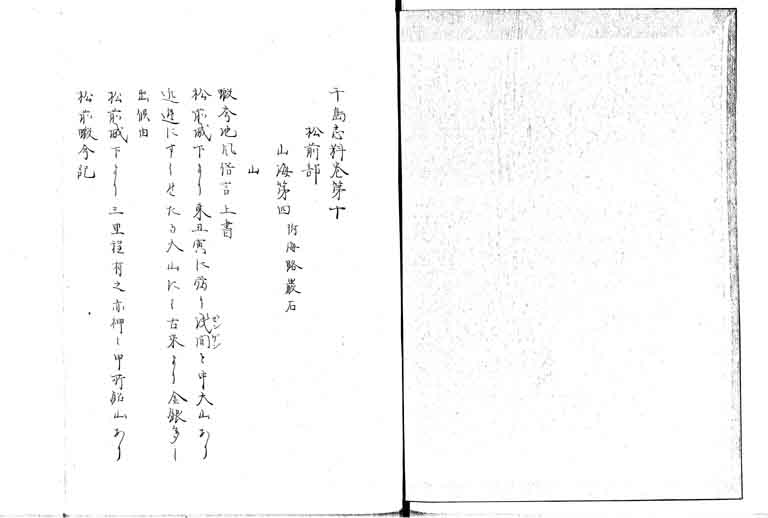 千島志料巻第十
松前部
山海第四 附海路巌石
山
蝦夷地風俗言上書
松前城下より東丑寅に當り浅間と申大山あり
センゲン
にすくせたる大山にく古来より金銀多し
出候由
松前城下より三里程有之亦押し申所船山あり
松前蝦夷記